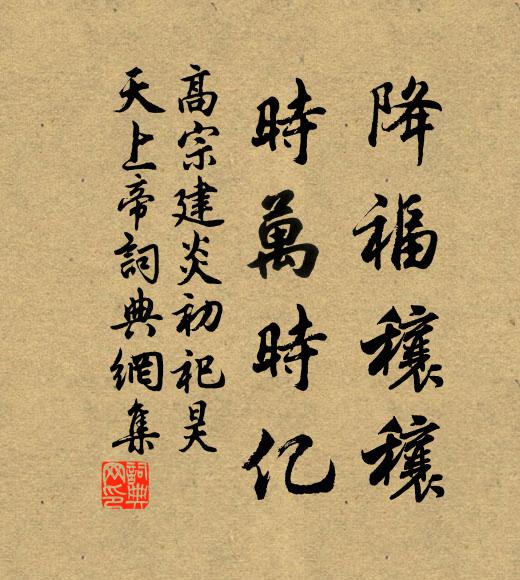 降福穰穰
時萬時亿
高宗建炎初祀昊
天上帝詞典網集
詞典网印